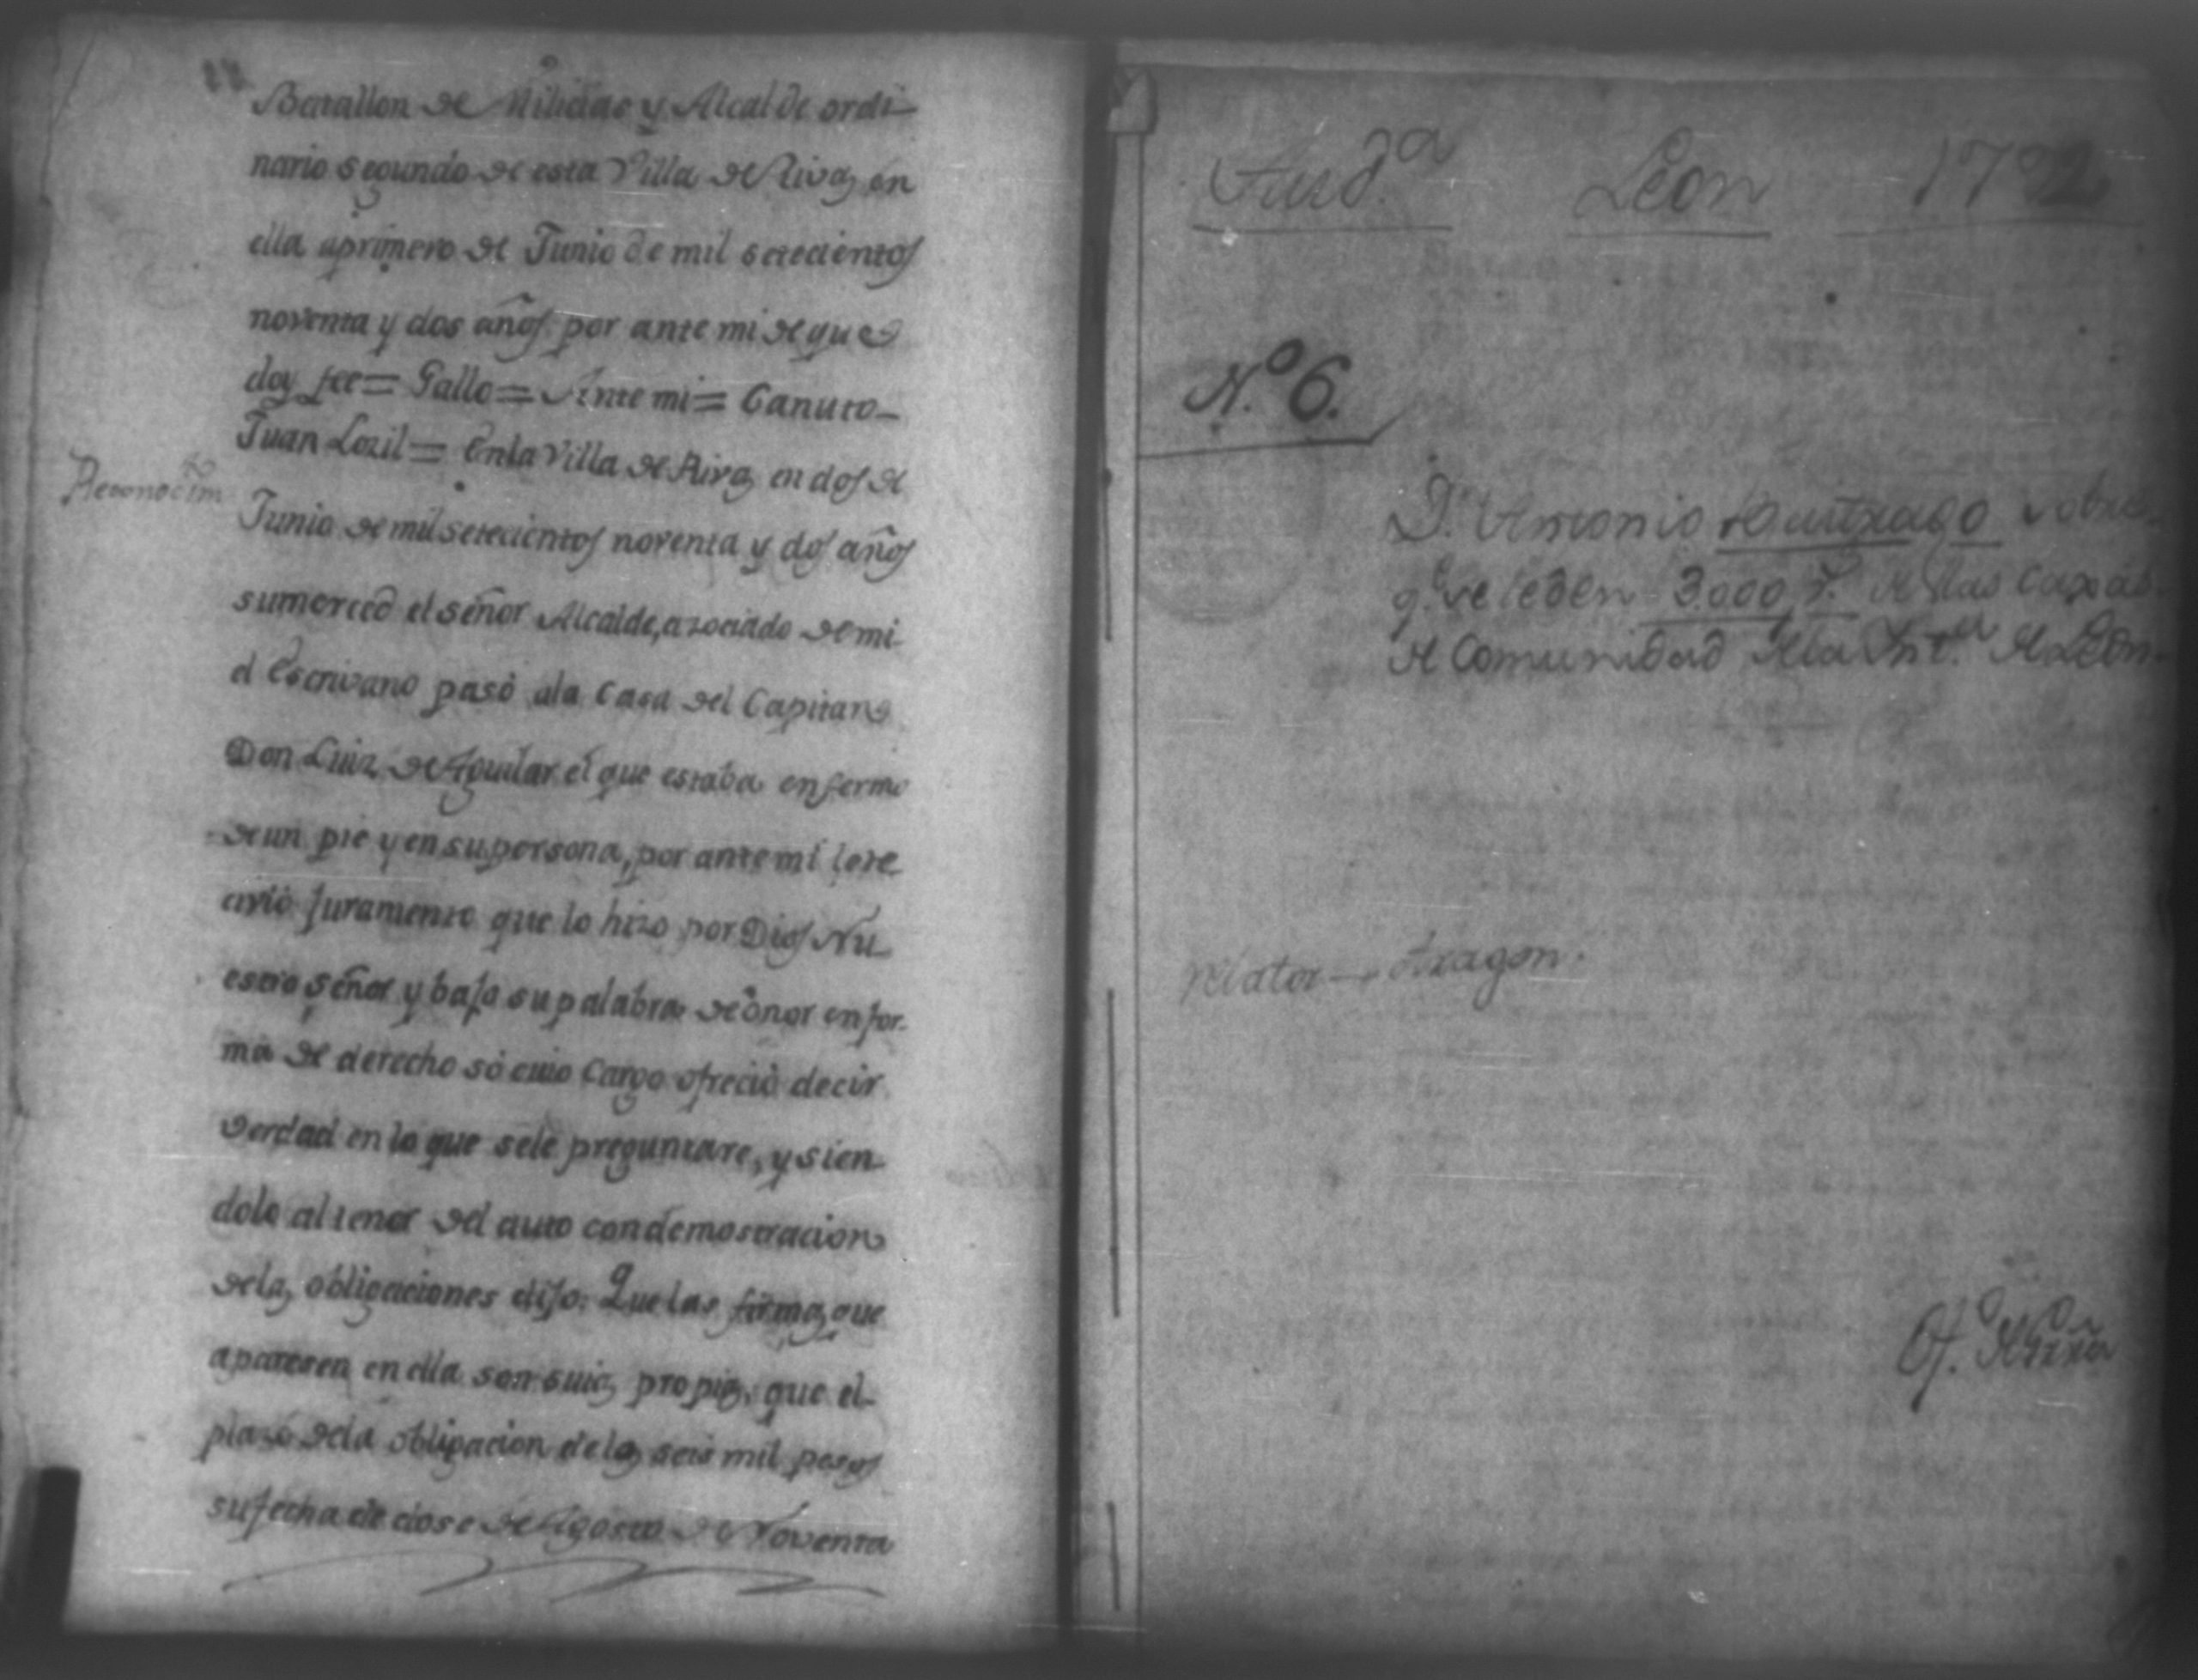 Batallon de Milicias y Alcalde ordi-
nario segundo de esta Villa de Rivas en
ella aprimero de Junio de mil setecientos
noventa y dos años por ante mi de que
doy fee = Gallo = Ante mi = Canuto
Juan Lozil = Enla Villa de Rivas en dos de
Reconocim.to
Junio de mil setecientos noventa y dos años
sumerced el señor Alcalde, asociado de mi
el Escrivano pasó ala Casa del Capitan
Don Luiz de Aguilar el que estaba enfermo
de un pie y en su persona, por ante mi le re
civió juramento que lo hizo por Dios Nu
estro Señor y bajo su palabra de onor en for-
ma de derecho só cuio Cargo ofreció decir
verdad en lo que sele preguntare, y sien
dolo al tenor del auto con demostracion
delas obligaciones dijo: Que las firmas que
aparesen en ella son suias propias, que el
plazo dela obligacion delos seis mil pesos
su fecha de dose de Agosto de Noventa
Aud.a Leon 1792
N.o 6.
D.n Antonio Buitrago sobre
q.e se le den 3.000 p.s de las Caxas
de Comunidad de la Int.a de Leon.
Relator — Aragon.